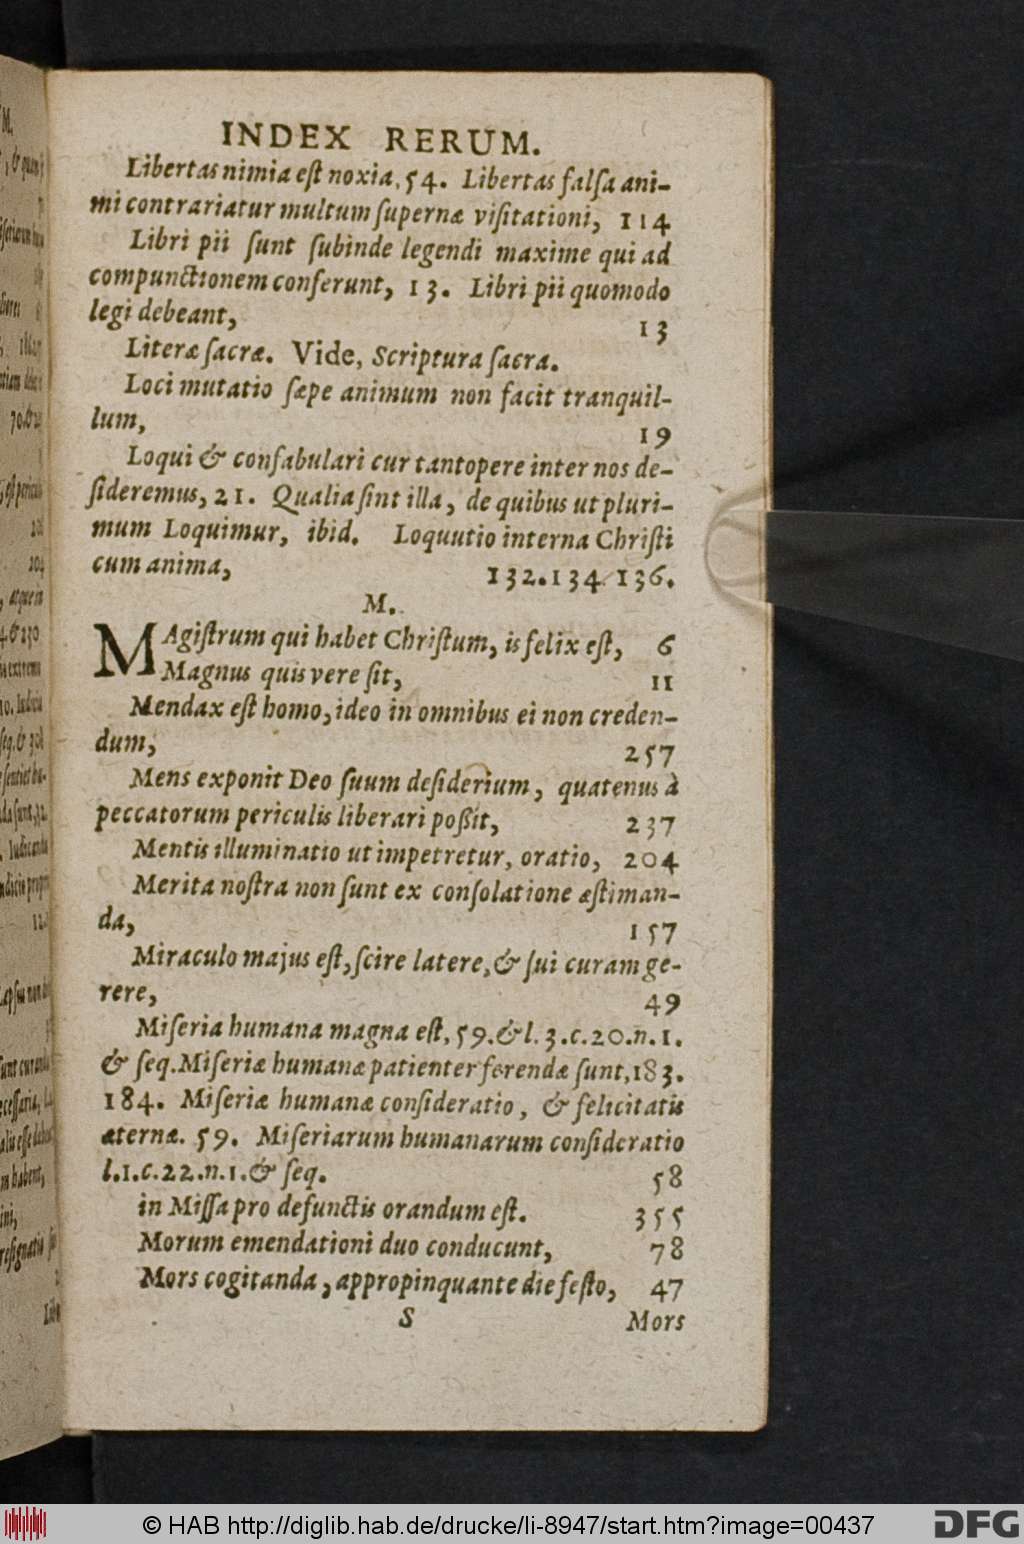 INDEX RERUM.
Libertas nimia eſt noxia, 54. Libertas falſa ani-
mi contrariatur multum ſupernæ viſitationi, 114
Libri pii ſunt ſubinde legendi maxime qui ad
compunctionem conferunt, 13. Libri pii quomodo
legi debeant, 13
Literæ ſacræ. Vide, Scriptura ſacra.
Loci mutatio ſæpe animum non facit tranquil-
lum, 19
Loqui & confabulari cur tantopere inter nos de-
ſideremus, 21. Qualia ſint illa, de quibus ut pluri-
mum Loquimur, ibid. Loquutio interna Chriſti
cum anima, 132.134.136.
M.
MAgiſtrum qui habet Chriſtum, is felix eſt, 6
Magnus quis vere ſit, 11
Mendax eſt homo, ideo in omnibus ei non creden-
dum, 257
Mens exponit Deo ſuum deſiderium, quatenus à
peccatorum periculis liberari poßit, 237
Mentis illuminatio ut impetretur, oratio, 204
Merita noſtra non ſunt ex conſolatione æſtiman-
da, 157
Miraculo majus eſt, ſcire latere, & ſui curam ge-
rere, 49
Miſeria humana magna eſt, 59. & l. 3. c. 20. n. 1.
& ſeq. Miſeriæ humanæ patienter ferendæ ſunt, 183.
184. Miſeriæ humanæ conſideratio, & felicitatis
æternæ. 59. Miſeriarum humanarum conſideratio
l. 1. c. 22. n. 1. & ſeq. 58
in Miſſa pro defunctis orandum eſt. 355
Morum emendationi duo conducunt, 78
Mors cogitanda, appropinquante die feſto, 47
S Mors
© HAB http://diglib.hab.de/drucke/li-8947/start.htm?image=00437
DFG